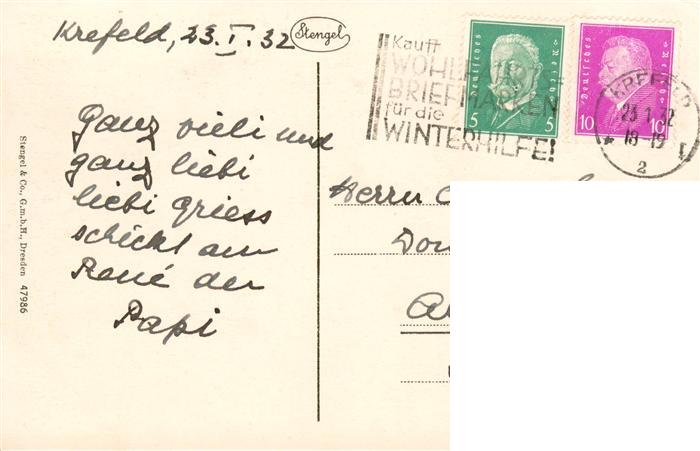 Krefeld, 23.I.32
Stengel
Kauft
WOHLFAHRTS
BRIEFMARKEN
für die
WINTERHILFE!
Deutsches Reich
5 5
Deutsches Reich
10 10
KREFELD
23.1.32
18-19
* 2
Ganz vieli und
ganz liebi
liebi Griess
schickt am
René der
Papi
Herrn
Stengel & Co., G.m.b.H., Dresden 47986